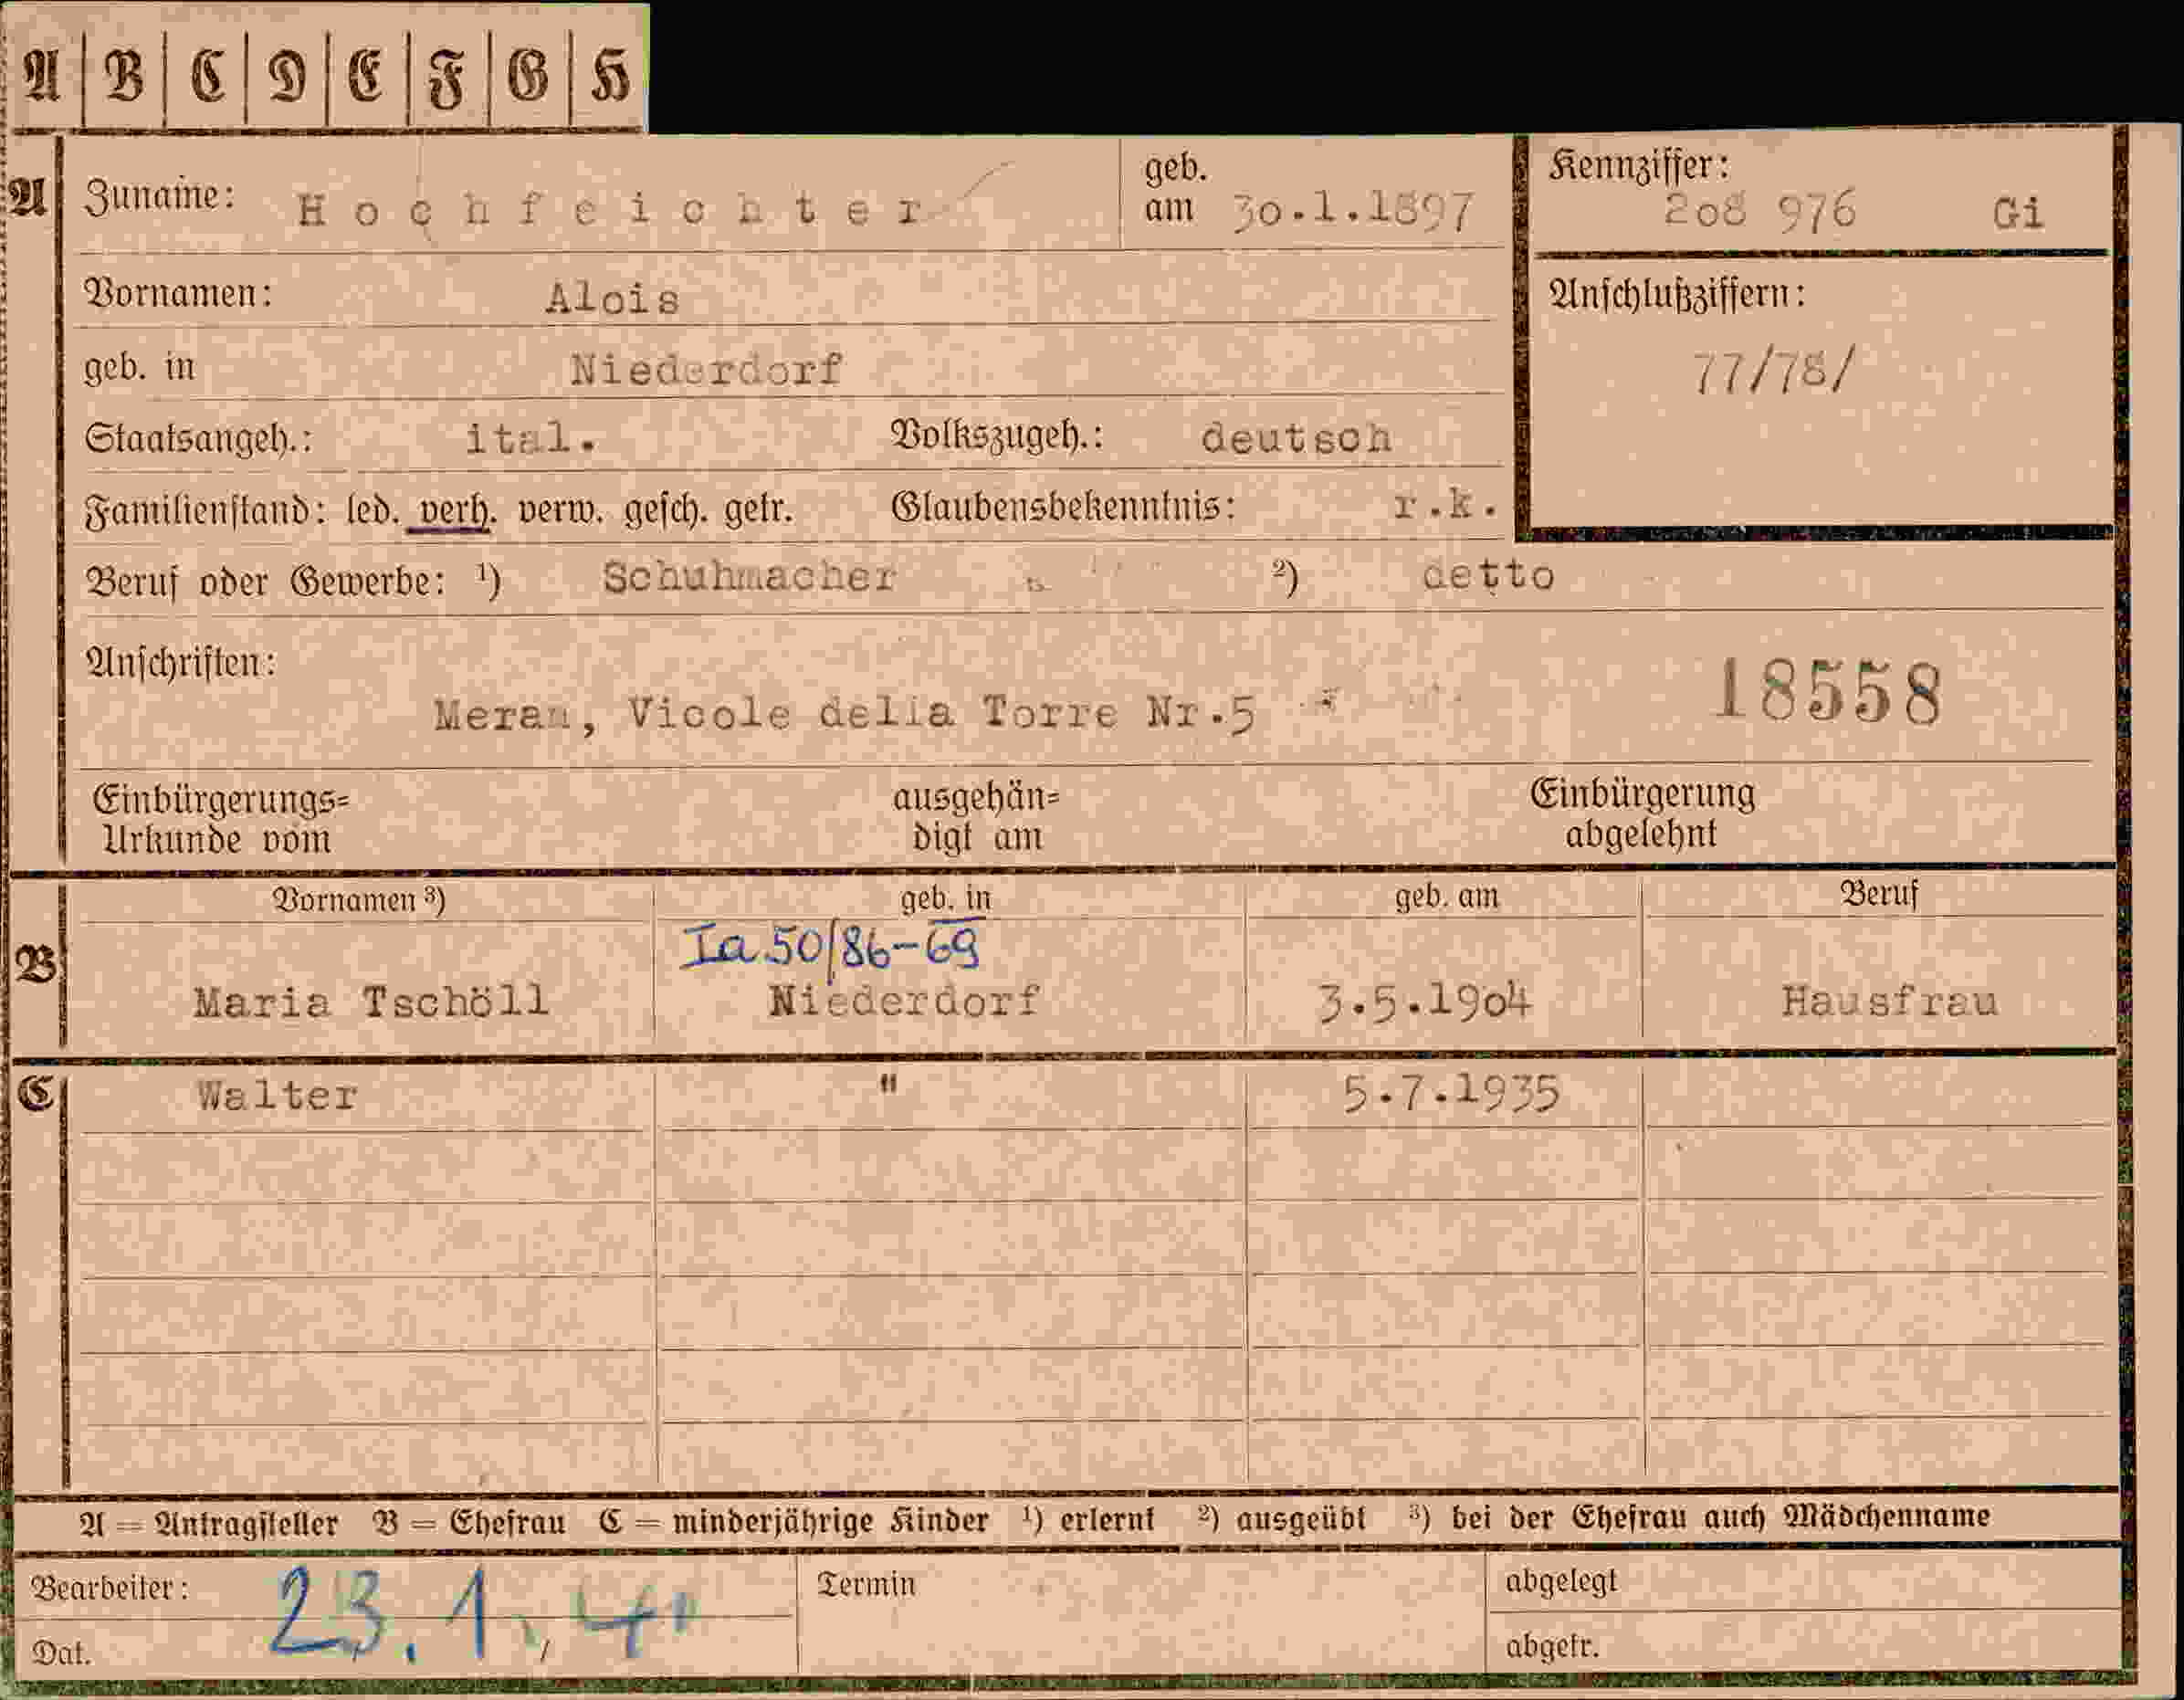 A B C D E F G H
A Zuname: Hochfeichter geb. am 30.1.1897 Kennziffer: 208 976 Gi
Vornamen: Alois Anschlußziffern:
geb. in Niederdorf 77/78/
Staatsangeh.: ital. Volkszugeh.: deutsch
Familienstand: led. verh. verw. gesch. getr. Glaubensbekenntnis: r.k.
Beruf oder Gewerbe: ¹) Schuhmacher ²) detto
Anschriften: 18558
Meran, Vicole della Torre Nr.5
Einbürgerungs= ausgehän= Einbürgerung
Urkunde vom digt am abgelehnt
Vornamen ³) geb. in geb. am Beruf
Ia 50/86-69
B Maria Tschöll Niederdorf 3.5.1904 Hausfrau
C Walter " 5.7.1935
A = Antragsteller B = Ehefrau C = minderjährige Kinder ¹) erlernt ²) ausgeübt ³) bei der Ehefrau auch Mädchenname
Bearbeiter: 23.1. Termin abgelegt
Dat. abgetr.